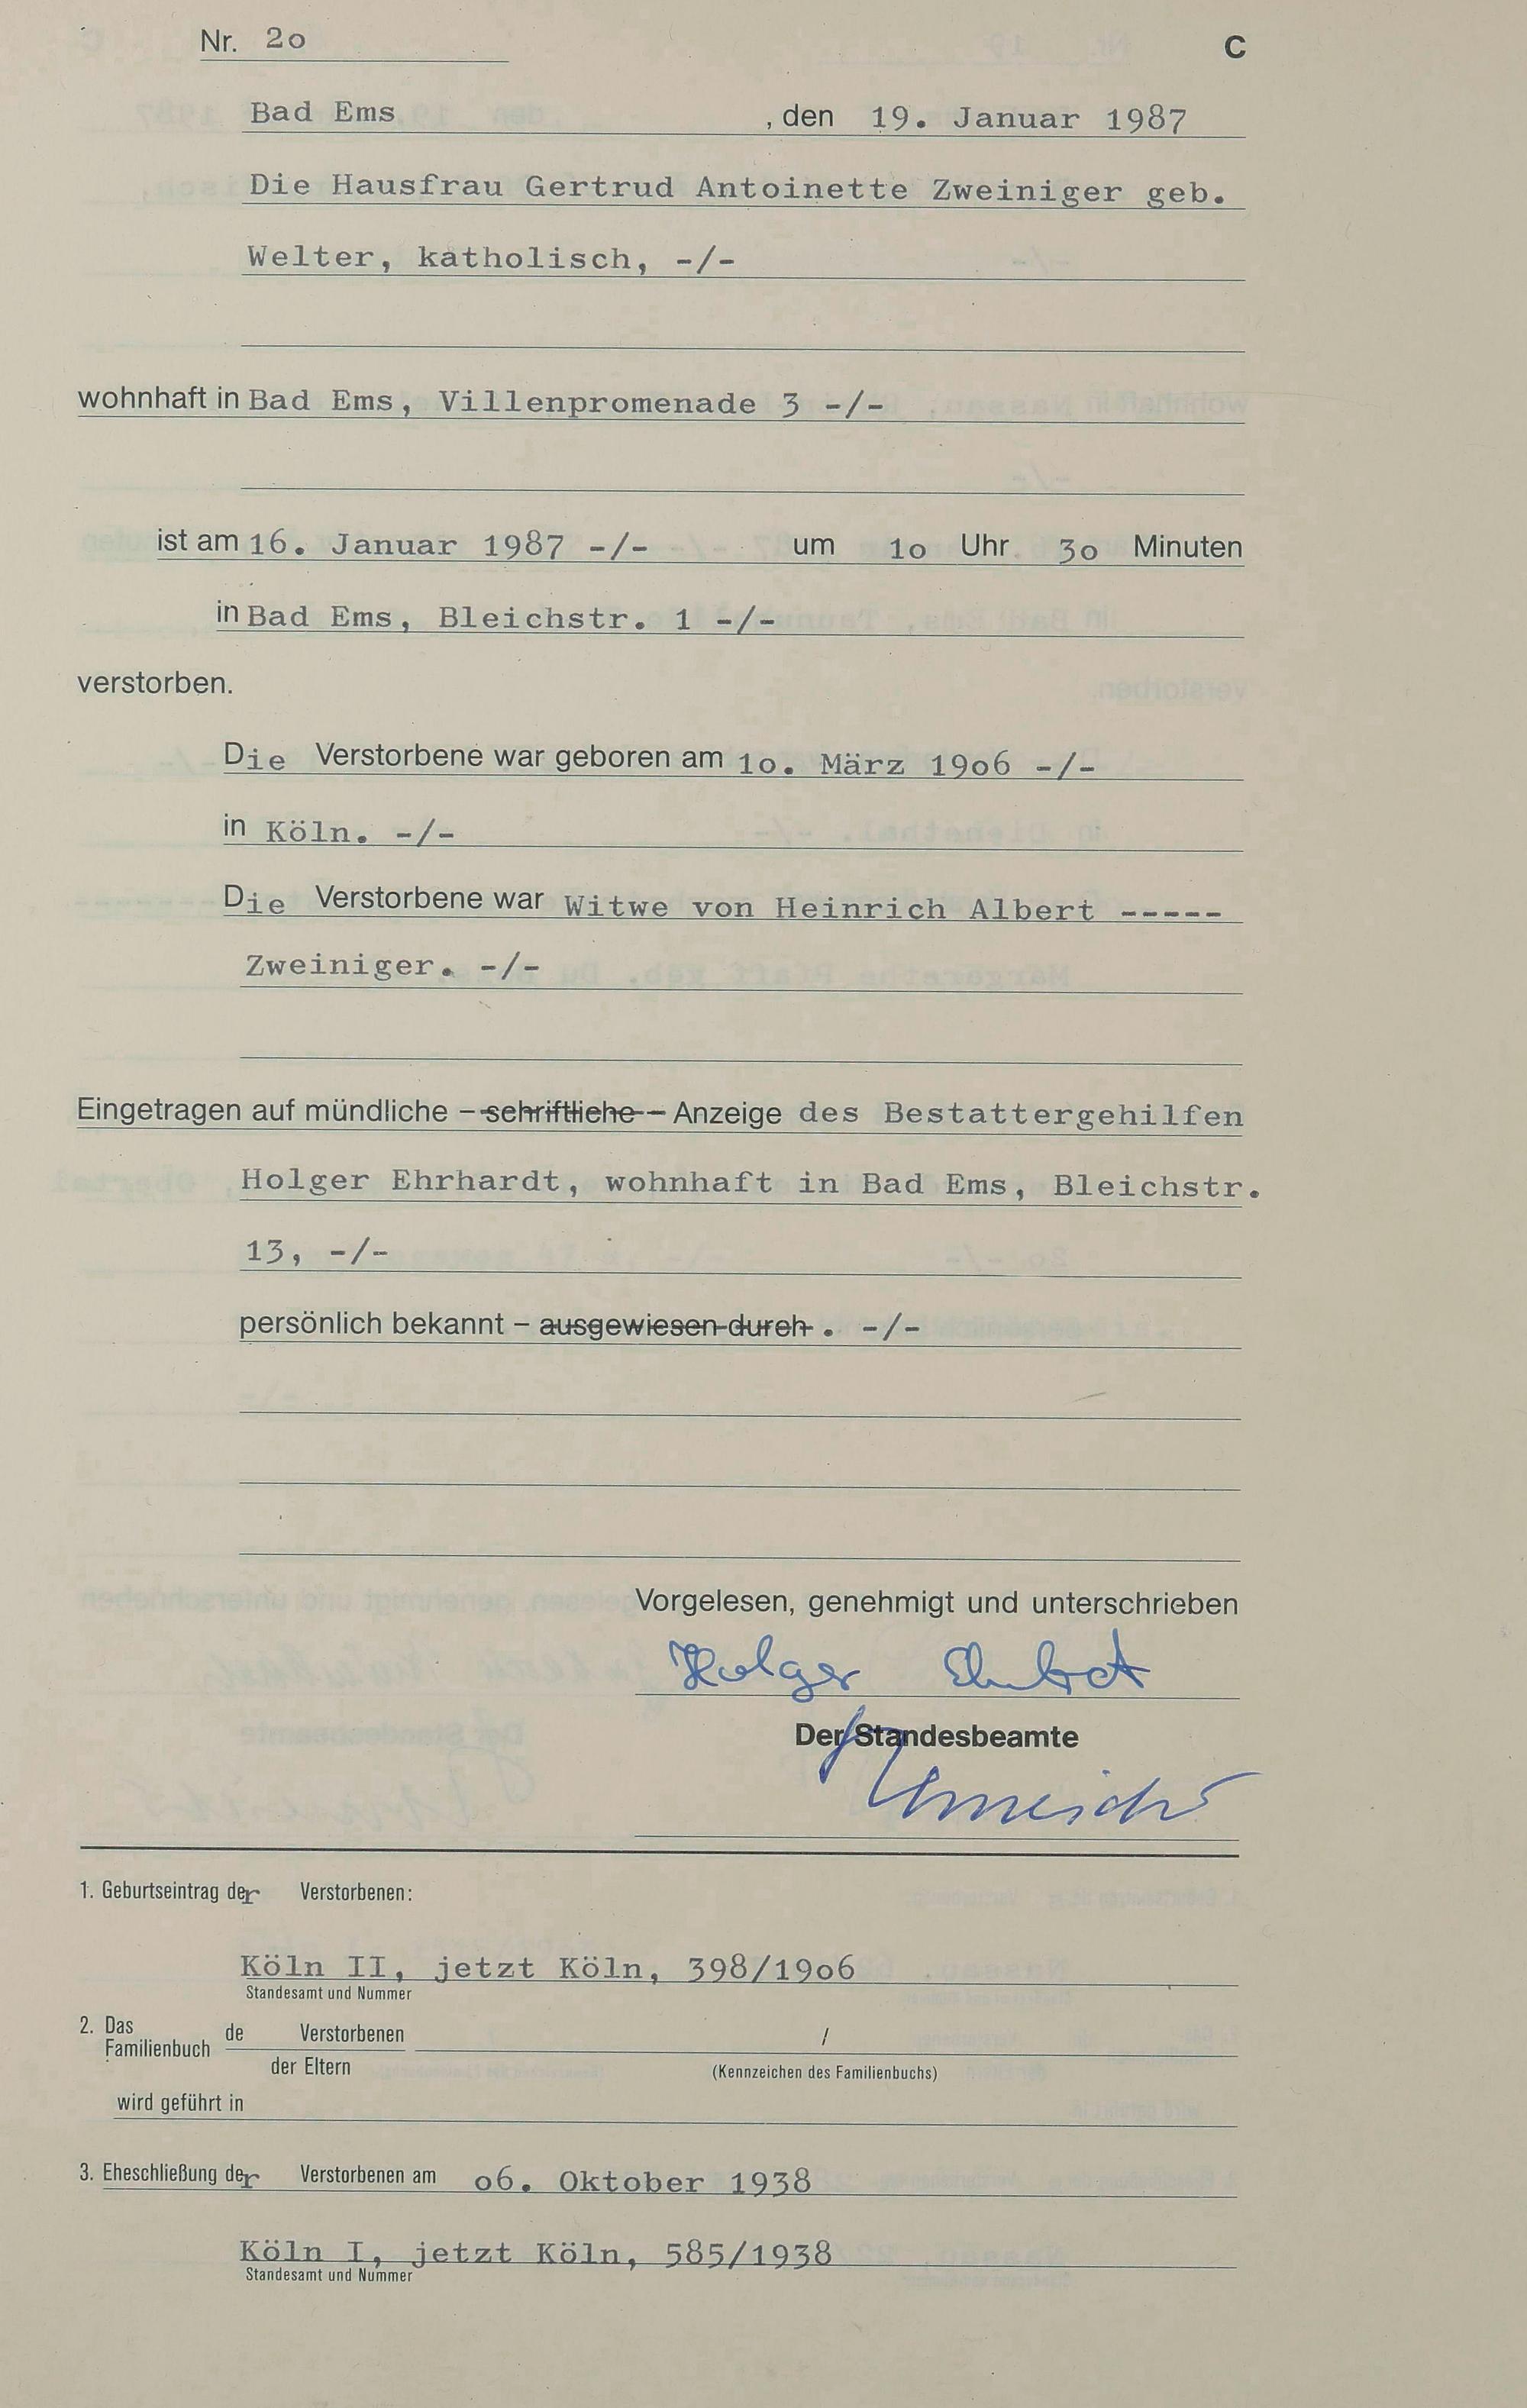 Nr. 2o C
Bad Ems , den 19. Januar 1987
Die Hausfrau Gertrud Antoinette Zweiniger geb.
Welter, katholisch, -/-
wohnhaft in Bad Ems, Villenpromenade 3 -/-
ist am 16. Januar 1987 -/- um 1o Uhr 3o Minuten
in Bad Ems, Bleichstr. 1 -/-
verstorben.
Die Verstorbene war geboren am 1o. März 19o6 -/-
in Köln. -/-
Die Verstorbene war Witwe von Heinrich Albert -----
Zweiniger. -/-
Eingetragen auf mündliche – schriftliche – Anzeige des Bestattergehilfen
Holger Ehrhardt, wohnhaft in Bad Ems, Bleichstr.
13, -/-
persönlich bekannt – ausgewiesen durch . -/-
Vorgelesen, genehmigt und unterschrieben
Holger
Der Standesbeamte
1. Geburtseintrag der Verstorbenen:
Köln II, jetzt Köln, 398/19o6
Standesamt und Nummer
2. Das Familienbuch de Verstorbenen /
der Eltern (Kennzeichen des Familienbuchs)
wird geführt in
3. Eheschließung der Verstorbenen am o6. Oktober 1938
Köln I, jetzt Köln, 585/1938
Standesamt und Nummer